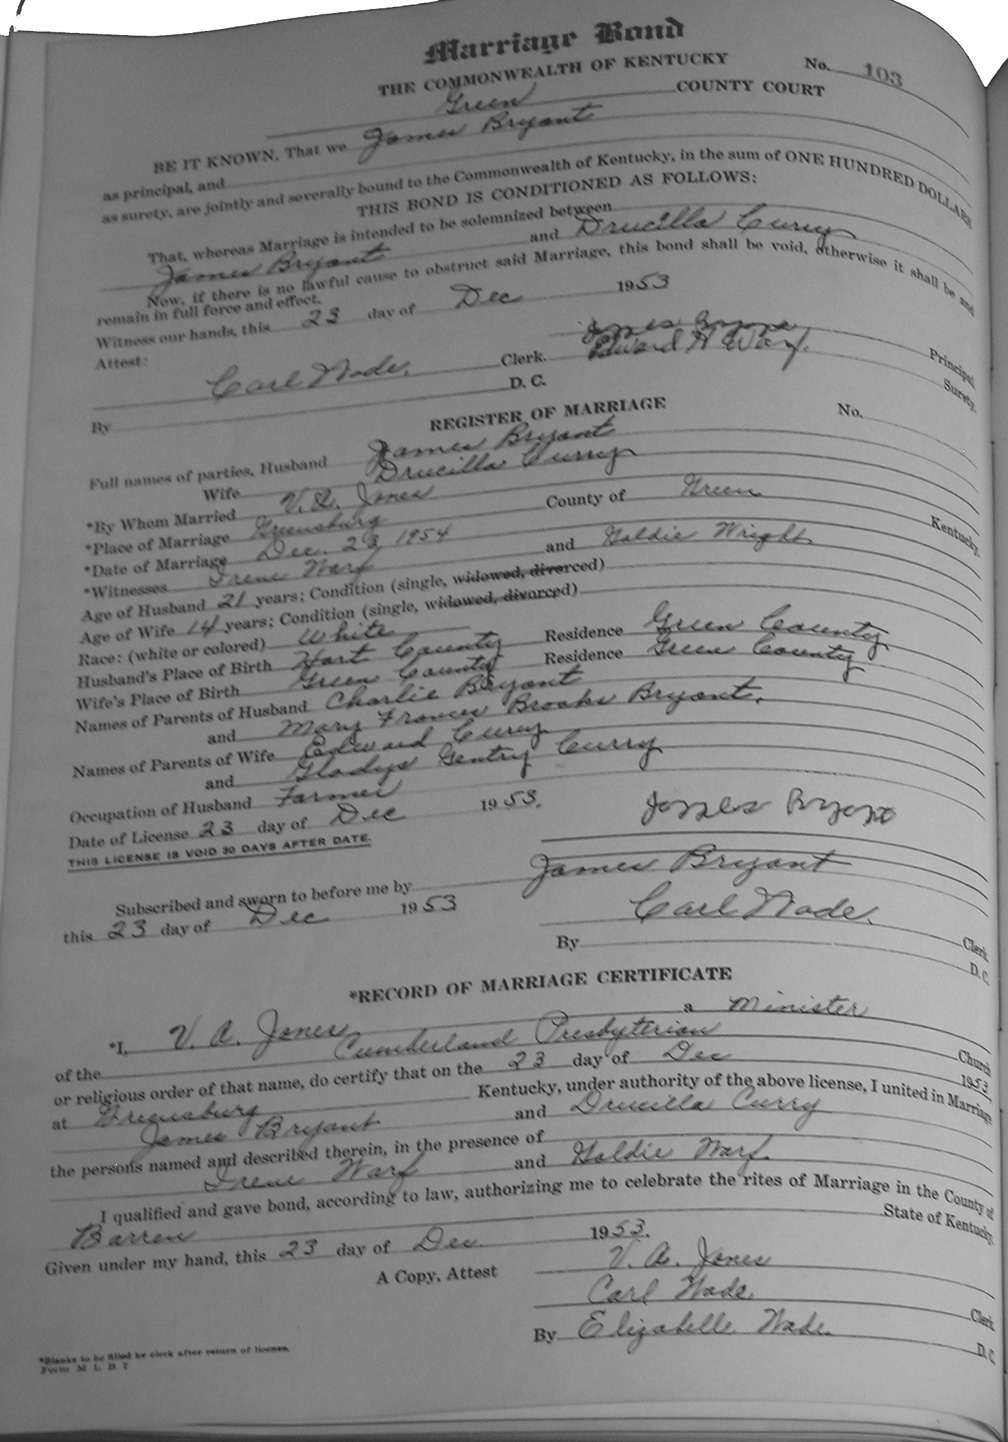 Marriage Bond
THE COMMONWEALTH OF KENTUCKY No. 103
Green COUNTY COURT
BE IT KNOWN, That we James Bryant
as principal, and
as surety, are jointly and severally bound to the Commonwealth of Kentucky, in the sum of ONE HUNDRED DOLLARS
THIS BOND IS CONDITIONED AS FOLLOWS:
That, whereas Marriage is intended to be solemnized between
James Bryant and Drucilla Curry
Now, if there is no lawful cause to obstruct said Marriage, this bond shall be void, otherwise it shall be and
remain in full force and effect.
Witness our hands, this 23 day of Dec 1953
Attest: James Bryant Principal.
Carl Wade. Clerk. Edward H Warf. Surety.
By D. C.
REGISTER OF MARRIAGE No.
Full names of parties, Husband James Bryant
Wife Drucilla Curry
*By Whom Married V. A. Jones
*Place of Marriage Greensburg County of Green Kentucky.
*Date of Marriage Dec. 23 1954
*Witnesses Irene Warf and Goldie Wright
Age of Husband 21 years; Condition (single, widowed, divorced)
Age of Wife 14 years; Condition (single, widowed, divorced)
Race: (white or colored) White
Husband's Place of Birth Hart County Residence Green County
Wife's Place of Birth Green County Residence Green County
Names of Parents of Husband Charlie Bryant
and Mary Frances Brooks Bryant.
Names of Parents of Wife Edward Curry
and Gladys Gentry Curry
Occupation of Husband Farmer
Date of License 23 day of Dec 1953.
THIS LICENSE IS VOID 30 DAYS AFTER DATE.
James Bryant
Subscribed and sworn to before me by James Bryant
this 23 day of Dec 1953 Carl Wade. Clerk
By D. C.
*RECORD OF MARRIAGE CERTIFICATE
*I, V. A. Jones a Minister
of the Cumberland Presbyterian Church
or religious order of that name, do certify that on the 23 day of Dec 1953
at Greensburg Kentucky, under authority of the above license, I united in Marriage
James Bryant and Drucilla Curry
the persons named and described therein, in the presence of
Irene Warf and Goldie Warf.
I qualified and gave bond, according to law, authorizing me to celebrate the rites of Marriage in the County of
Barren State of Kentucky.
Given under my hand, this 23 day of Dec. 1953.
V. A. Jones
A Copy, Attest Carl Wade. Clerk
By Elizabelle Wade. D. C.
*Blanks to be filled by clerk after return of license.
Form M L B 7